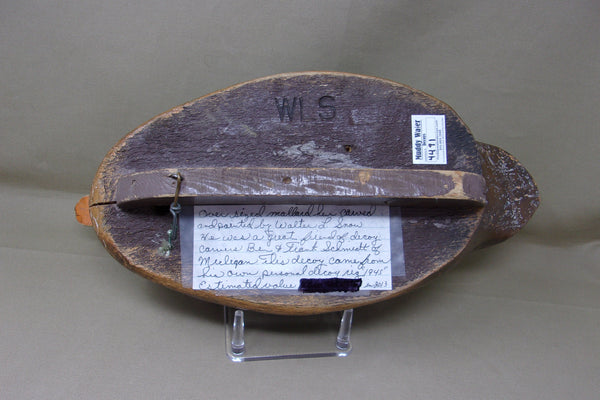 WLS
Muddy Water
Decoys
4491
Over sized mallard hen carved
and painted by Walter L Snow
He was a great friend of decoy
carvers Ben & Frank Schmidt of
Michigan This decoy came from
his own personal decoy rig 1945
Estimated value
in 2013